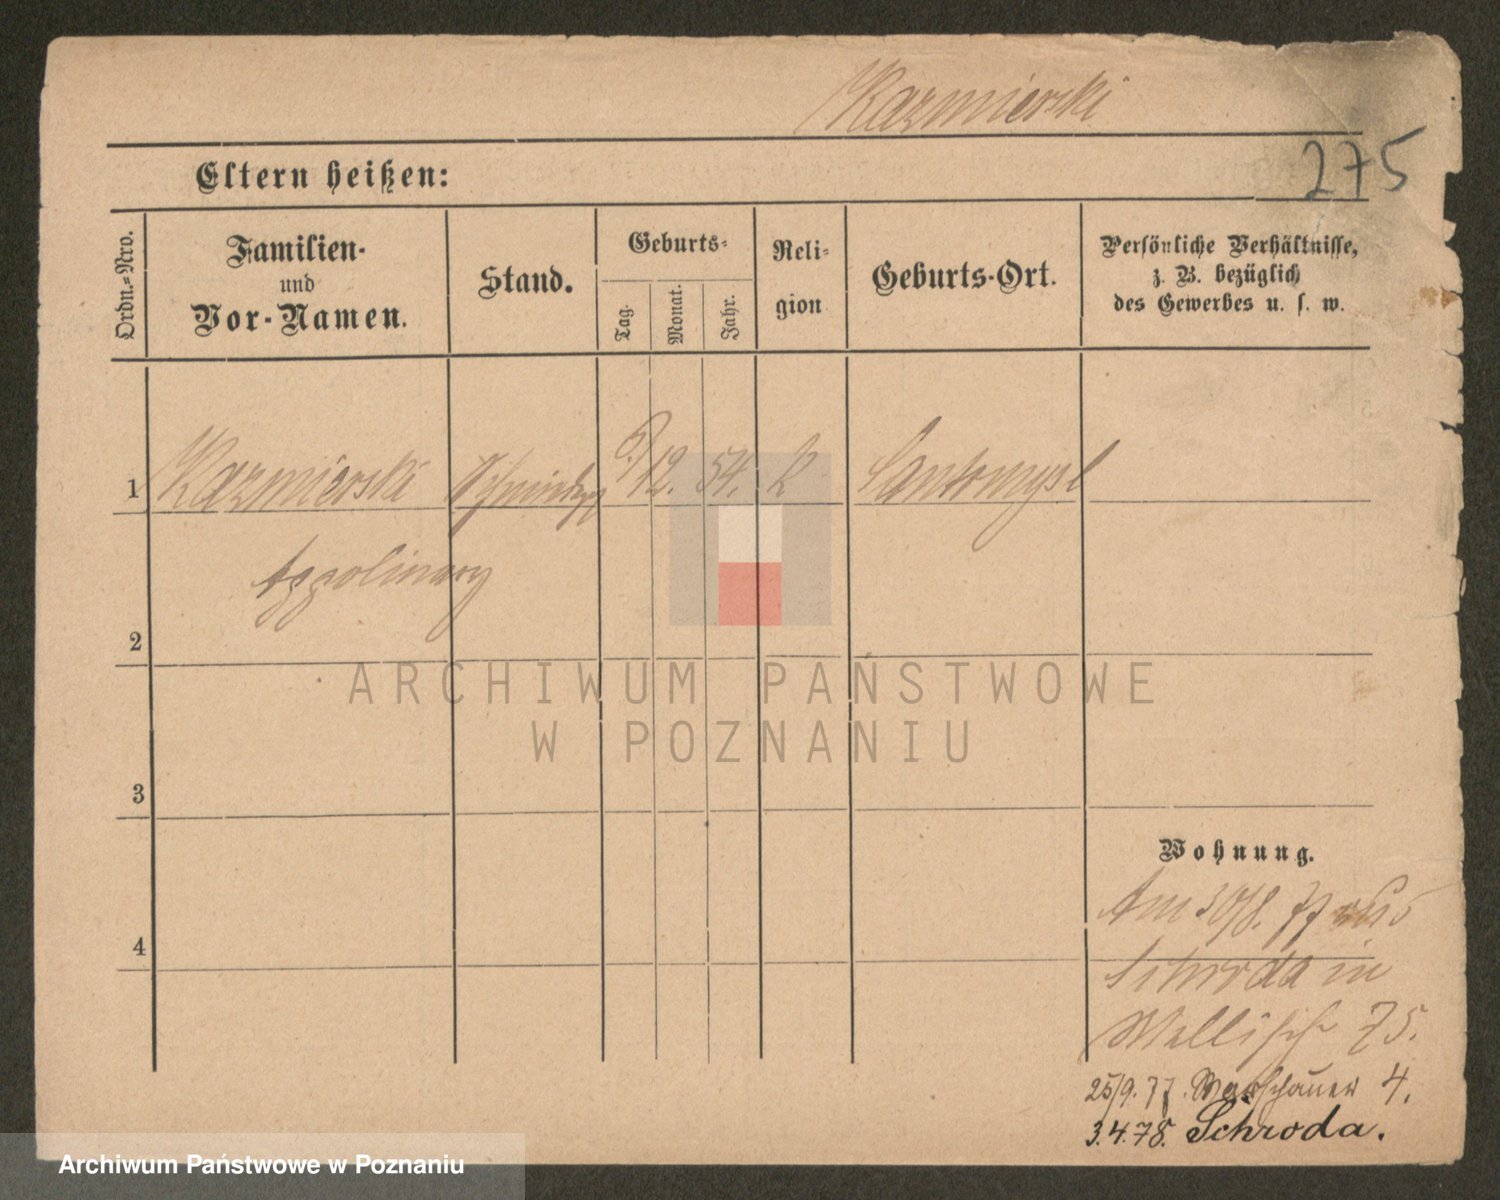 Kazmierski
275
Eltern heißen:
Ordn.-Nro.
Familien-
und
Vor-Namen.
Stand.
Geburts-
Tag.
Monat.
Jahr.
Reli-
gion
Geburts-Ort.
Persönliche Verhältnisse,
z. B. bezüglich
des Gewerbes u. s. w.
1 Kazmierski 12. 54. k Santomysl
Appolinary
2
3
4
Wohnung.
Am 30/8. 77 aus
Schroda in
Wallisch 75.
25/9. 77. Warschauer 4.
3.4.78. Schroda.
ARCHIWUM PAŃSTWOWE
W POZNANIU
Archiwum Państwowe w Poznaniu